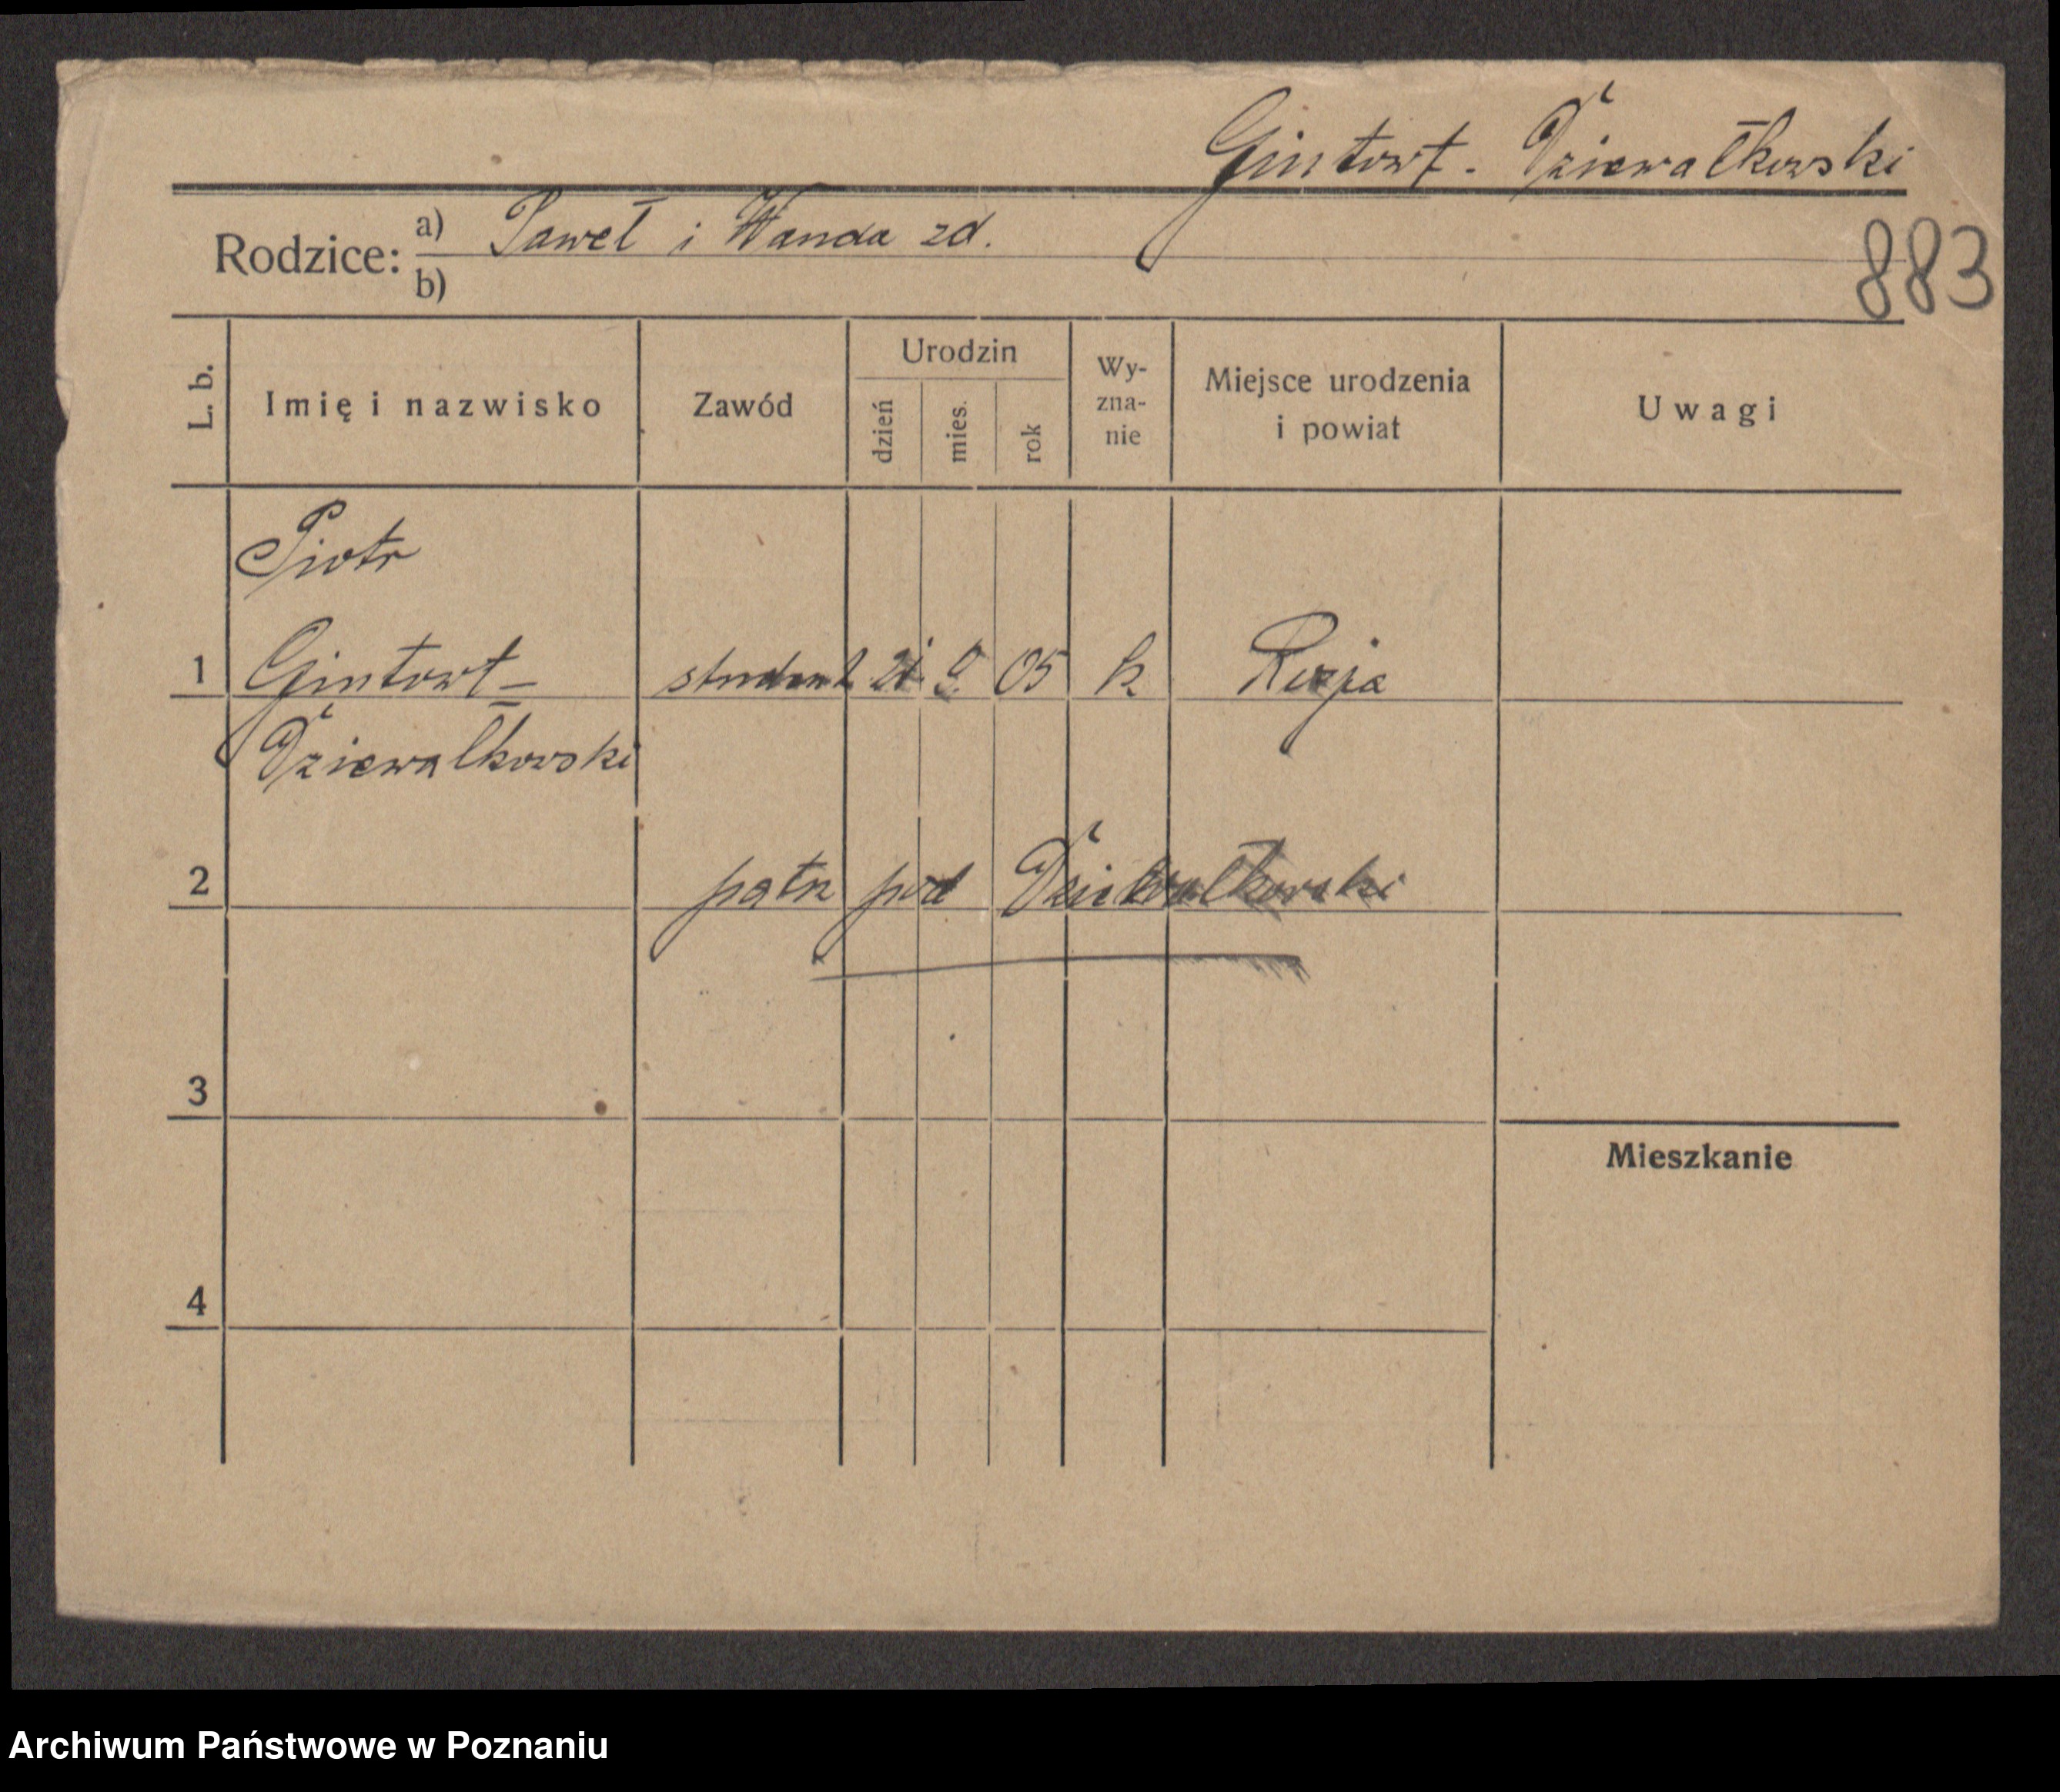 Gintowt-Dziewałkowski
Rodzice: a) Paweł i Wanda zd.
b)
883
L. b. Imię i nazwisko Zawód Urodzin dzień mies. rok Wy-zna-nie Miejsce urodzenia i powiat Uwagi
Piotr
1 Gintowt- student 21. 9. 05 k
Dziewałkowski
2 patrz pod Dziewałkowski
3
Mieszkanie
4
Archiwum Państwowe w Poznaniu